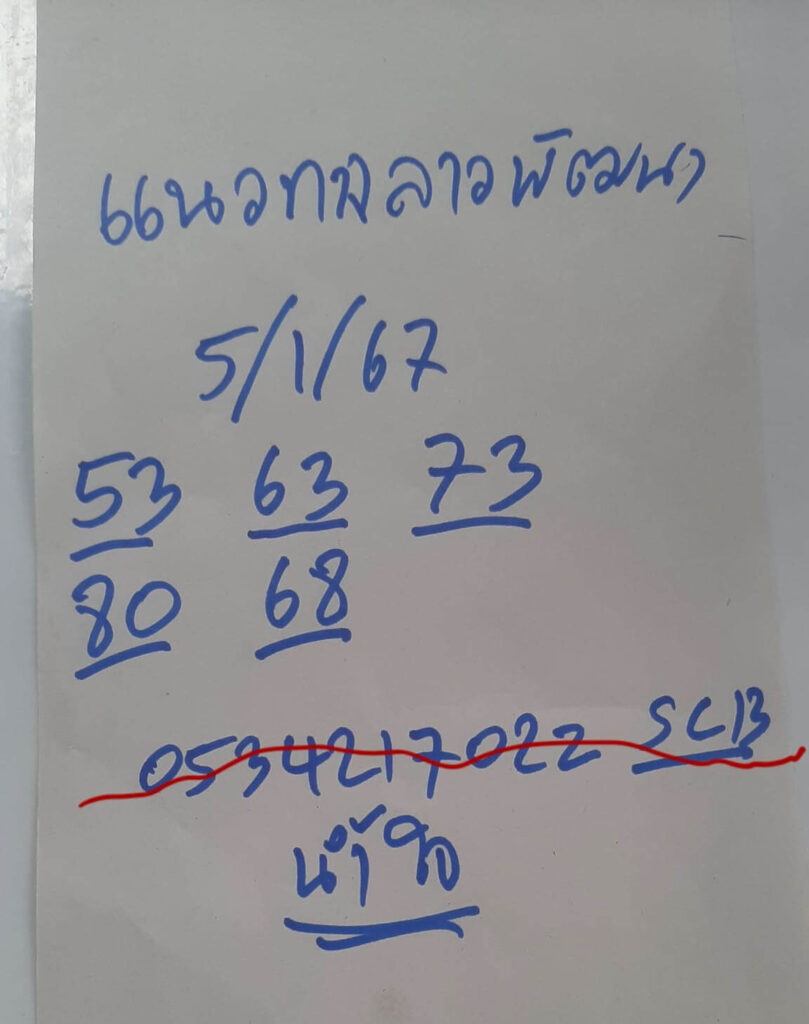 แนวทางลาวพัฒนา
5/1/67
53 63 73
80 68
0534217022 SCB
น้ำใจ